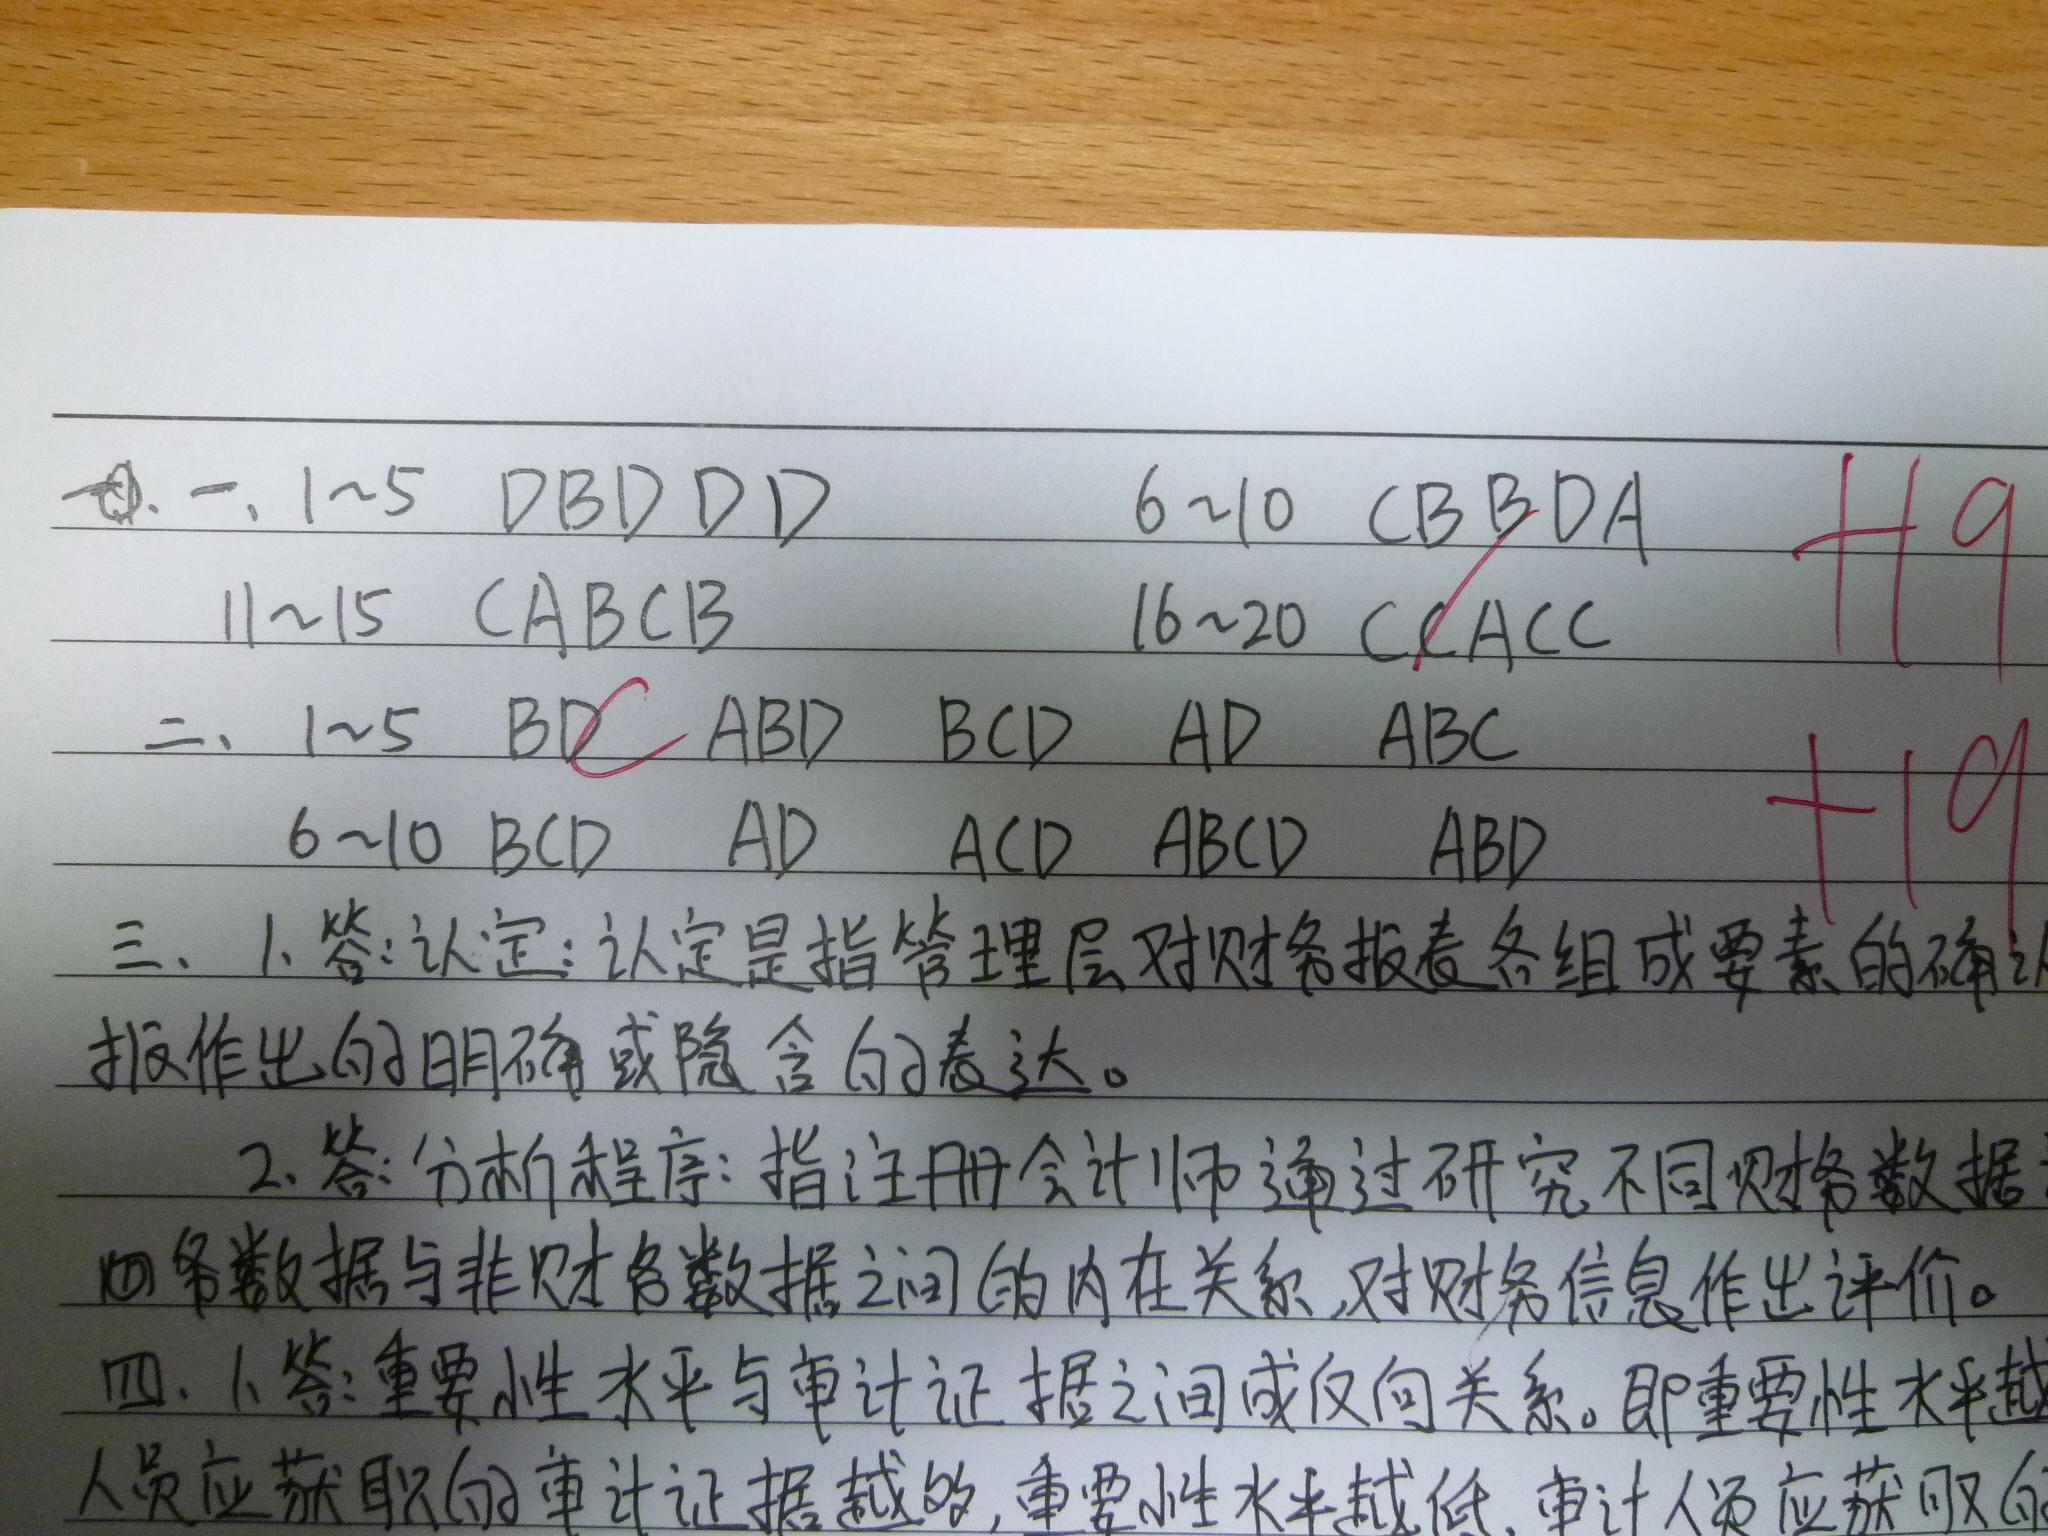 一、1~5 DBDDD 6~10 CBBDA +19
11~15 CABCB 16~20 CCACC
二、1~5 BD ABD BCD AD ABC +19
6~10 BCD AD ACD ABCD ABD
三、1、答:认定:认定是指管理层对财务报表各组成要素的确认
报作出的明确或隐含的表达。
2、答:分析程序:指注册会计师通过研究不同财务数据
务数据与非财务数据之间的内在关系,对财务信息作出评价。
四、1、答:重要性水平与审计证据之间成反向关系。即重要性水平越
人员应获取的审计证据越,重要性水平越低,审计人员应获取的